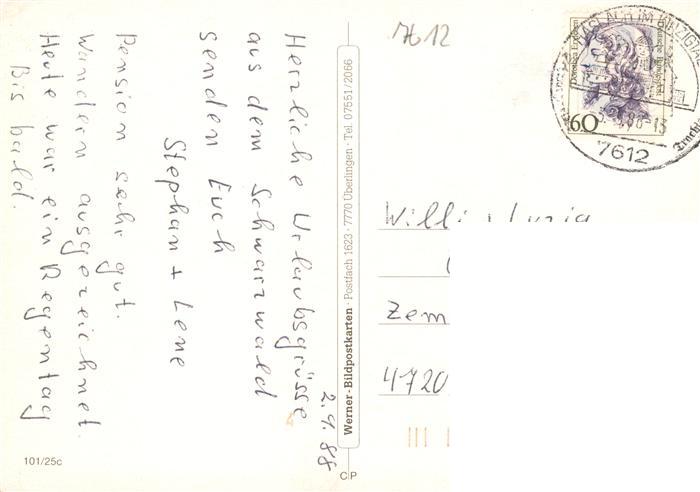 Herzliche Urlaubsgrüsse
aus dem Schwarzwald
senden Euch
Stephan + Lene
Pension sehr gut.
Wandern ausgezeichnet.
Heute war ein Regentag
Bis bald.
2.9.88
7612
Werner-Bildpostkarten · Postfach 1623 · 7770 Überlingen · Tel. 07551/2066
Deutsche Bundespost
60
HASLACH IM KINZIGTAL
7612
Willi
Zem
4720
101/25c
CP